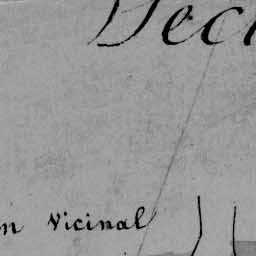 Decl
n vicinal